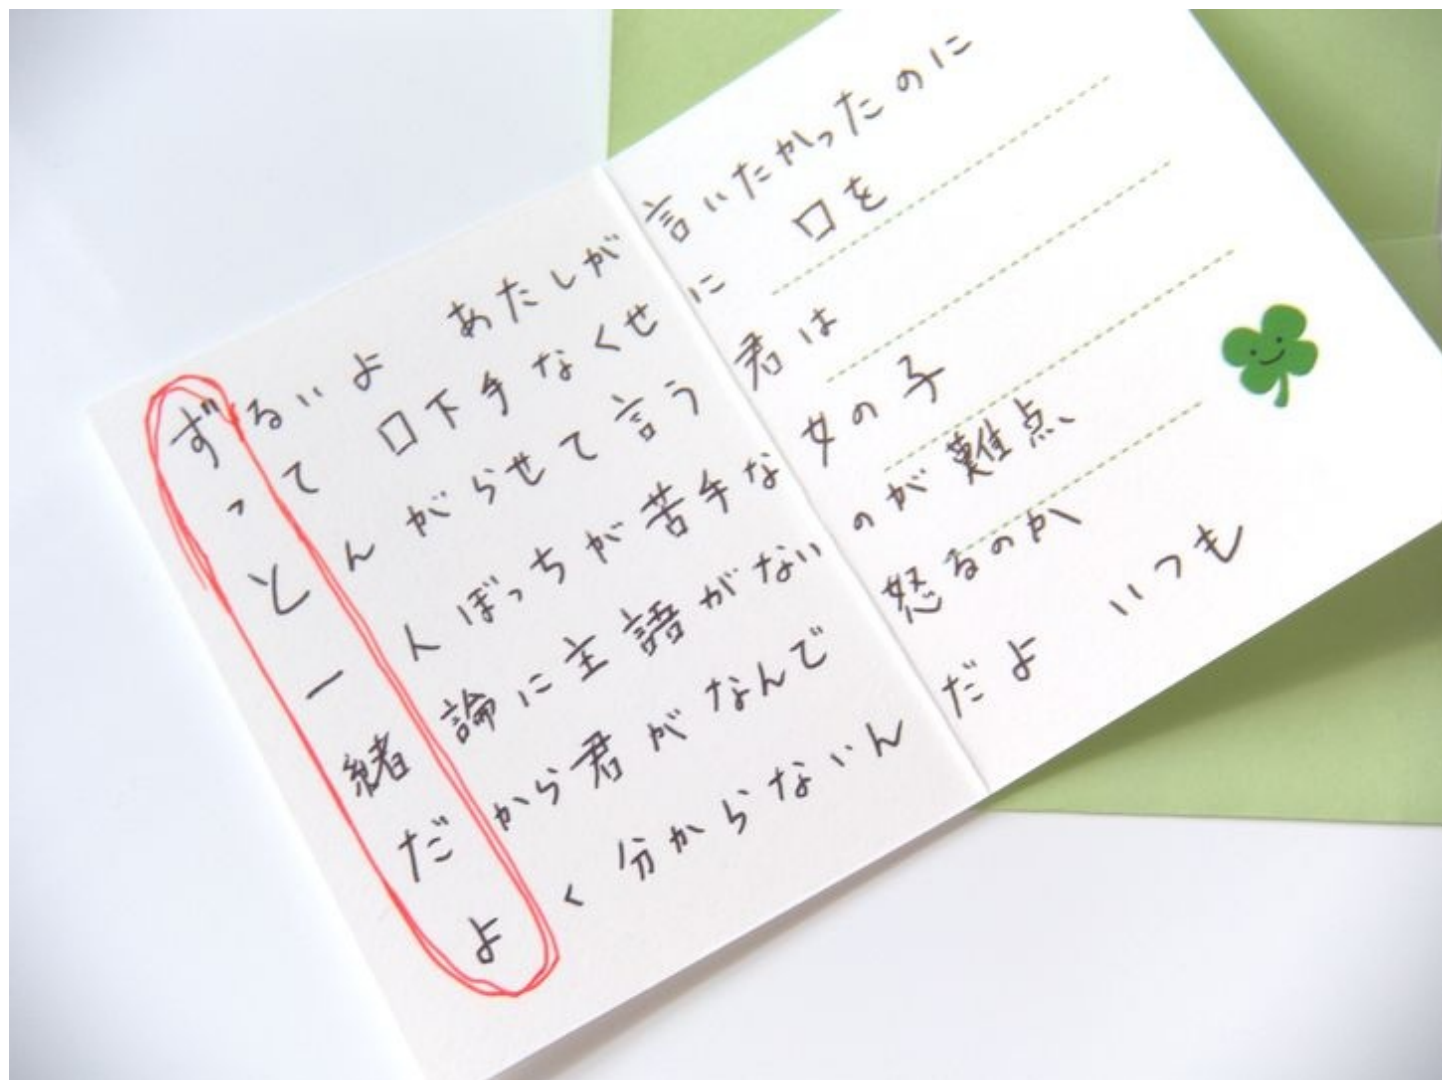 ずるいよ あたしが言いたかったのに
って 口下手なくせに 口を
とんがらせて言う君は
一人ぼっちが苦手な女の子
緒論に主語がないのが難点、
だから君がなんで怒るのか
よく分からないんだよ いつも